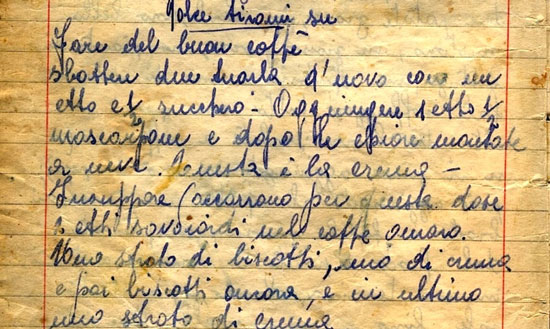 Dolce tirami su
Fare del buon caffè
sbattere due tuorla d'uovo con un
etto e 1/2 zucchero - Aggiungere 1 etto 1/2
mascarpone e dopo le chiare montate
a neve. Questa è la crema -
Inzuppare (occorrono per questa dose
etti savoiardi nel caffè amaro.
Uno strato di biscotti, uno di crema
e poi biscotti ancora, e in ultimo
uno strato di crema